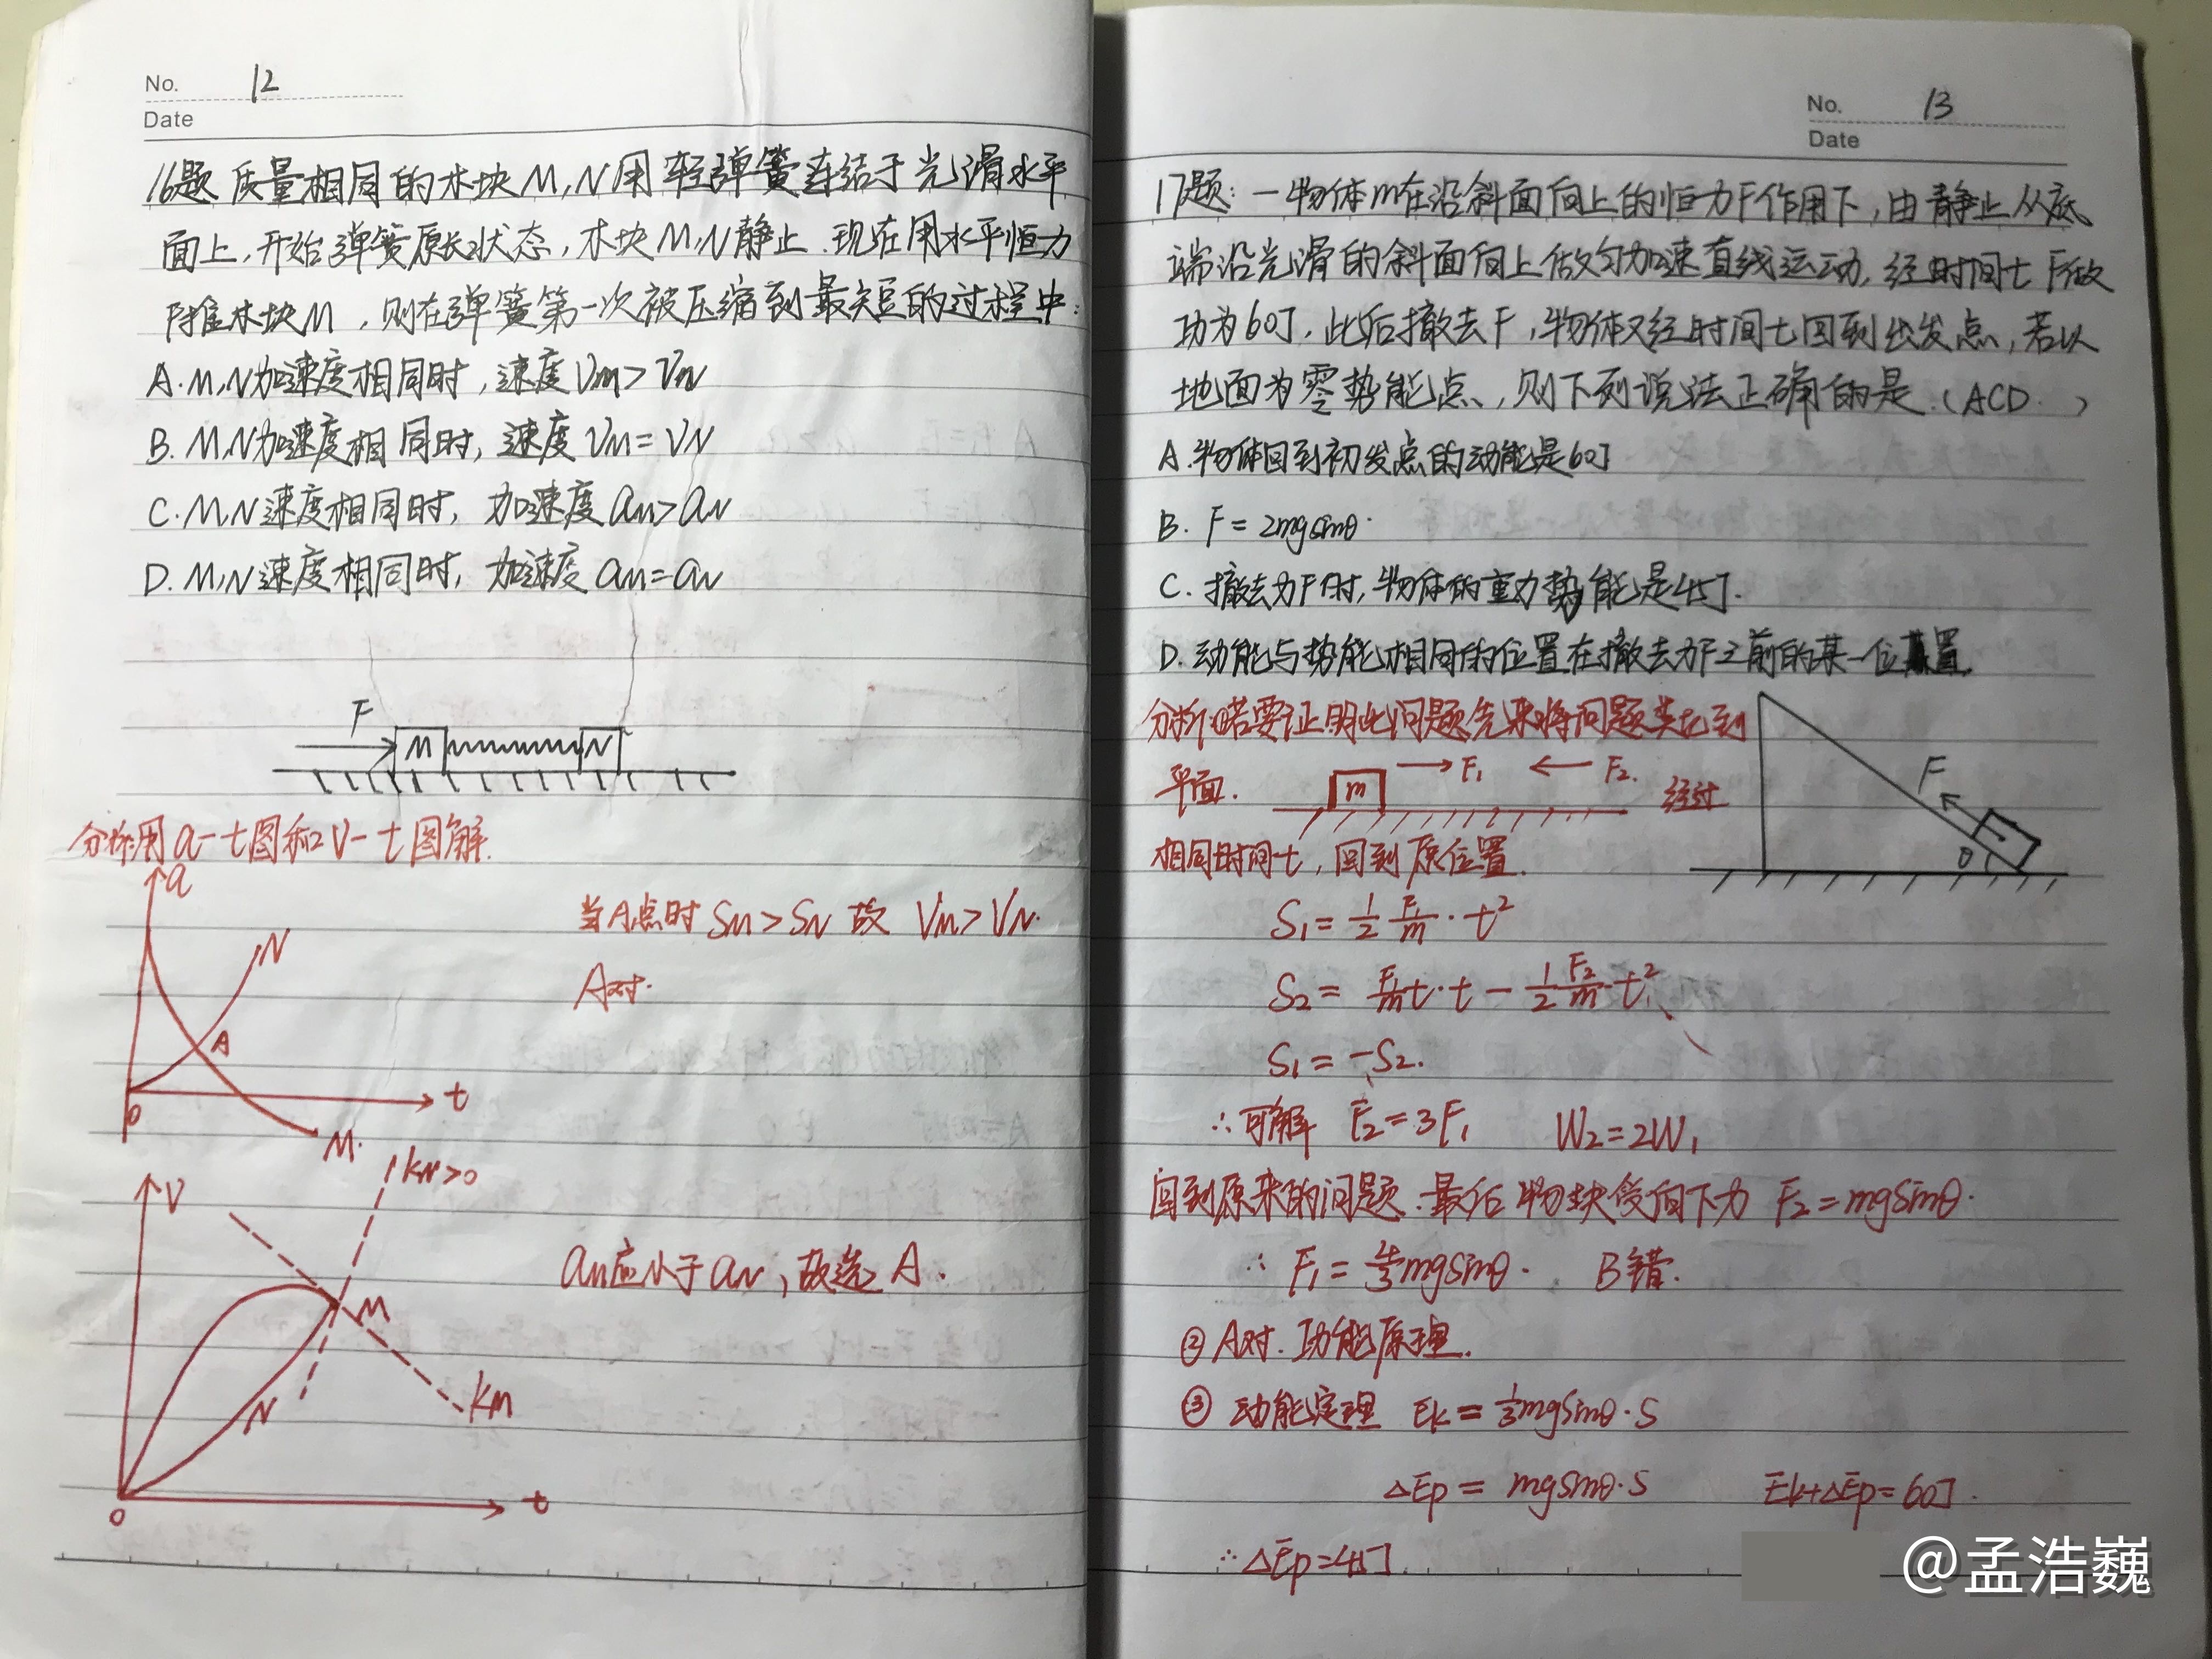 No. 12
Date
16题 质量相同的木块M,N用轻弹簧连结于光滑水平
面上,开始弹簧原长状态,木块M,N静止.现在用水平恒力
F推木块M,则在弹簧第一次被压缩到最短的过程中:
A.M,N加速度相同时,速度Vm>Vn
B.M,N加速度相同时,速度VM=VN
C.M,N速度相同时,加速度aM>aN
D.M,N速度相同时,加速度aM=aN
F
M N
分析:用a-t图和V-t图解.
a
N
A
O
t
M.
当A点时 SM>SN 故 VM>VN.
A对.
V
KN>0
M
N
KM
O
t
aM应小于aN,故选A.
No. 13
Date
17题:一物体m在沿斜面向上的恒力F作用下,由静止从底
端沿光滑的斜面向上做匀加速直线运动,经时间t F做
功为60J,此后撤去F,物体又经时间t回到出发点,若以
地面为零势能点,则下列说法正确的是.(ACD.)
A.物体回到初发点的动能是60J
B. F=2mgsinθ.
C.撤去力F时,物体的重力势能是45J.
D.动能与势能相同的位置在撤去力F之前的某一位置.
分析:①若要证明此问题先来将问题类比到
平面. m F₁ F₂. 经过
相同时间t,回到原位置.
F
θ
S₁=½ F₁/m·t²
S₂= F₁/m t·t-½ F₂/m·t²
S₁=-S₂.
∴可解 F₂=3F₁ W₂=2W₁
回到原来的问题.最后物块受向下力 F₂=mgsinθ.
∴ F₁=4/3mgsinθ. B错.
② A对.功能原理.
③ 动能定理 Ek=⅓mgsinθ·S
ΔEp=mgsinθ·S Ek+ΔEp=60J.
∴ΔEp=45J.
@孟浩巍